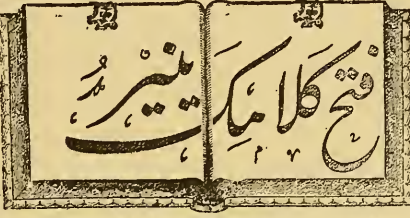 فتح كَلامِكَ ينيرُ